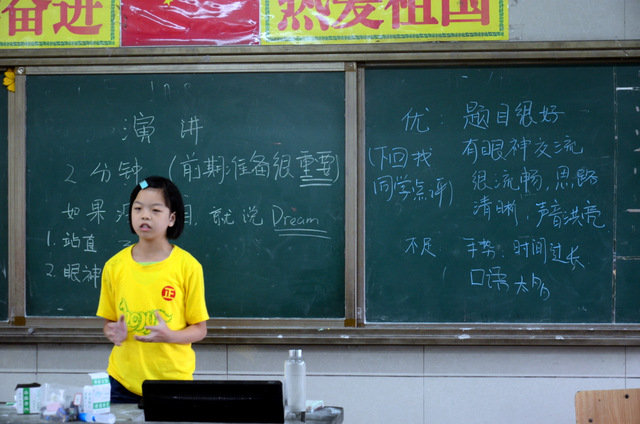 奋进
热爱祖国
演讲
2分钟 (前期准备很重要)
如果没 目, 就说 Dream
1. 站直
2. 眼神
优: 题目很好
(下回找 有眼神交流
同学点评) 很流畅, 思路
清晰, 声音洪亮
不足 手势: 时间过长
口语
正